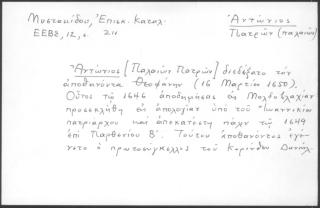 Μυστακίδου, Ἐπισκ. Καταλ.
ΕΕΒΣ, 12, σ. 211
Ἀντώνιος
Πατρῶν (παλαιῶν)
Ἀντώνιος [Παλαιῶν Πατρῶν] διεδέξατο τὸν
ἀποθανόντα Θεοφάνην (16 Μαρτίου 1650).
Οὗτος τῷ 1646 ἀποδημήσας εἰς Μολδοβλαχίαν
προσεκλήθη εἰς ἀπολογίαν ὑπὸ τοῦ Ἰωαννικίου
πατριάρχου καὶ ἀποκατέστη πάλιν τῷ 1649
ἐπὶ Παρθενίου Β΄. Τούτου ἀποθανόντος ἐγέ-
νετο ὁ πρωτοσύγκελλος τοῦ Κορίνθου Δανιήλ.